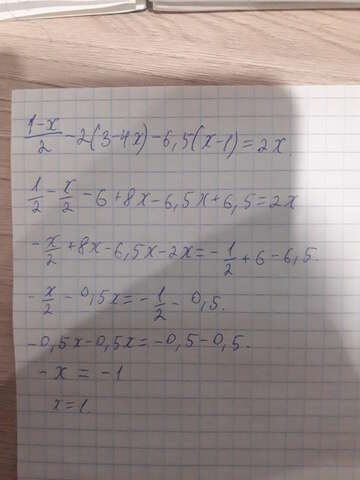 (1-x)/2 - 2(3-4x) - 6,5(x-1) = 2x.
1/2 - x/2 - 6 + 8x - 6,5x + 6,5 = 2x
-x/2 + 8x - 6,5x - 2x = -1/2 + 6 - 6,5.
-x/2 - 0,5x = -1/2 - 0,5.
-0,5x - 0,5x = -0,5 - 0,5.
-x = -1
x = 1